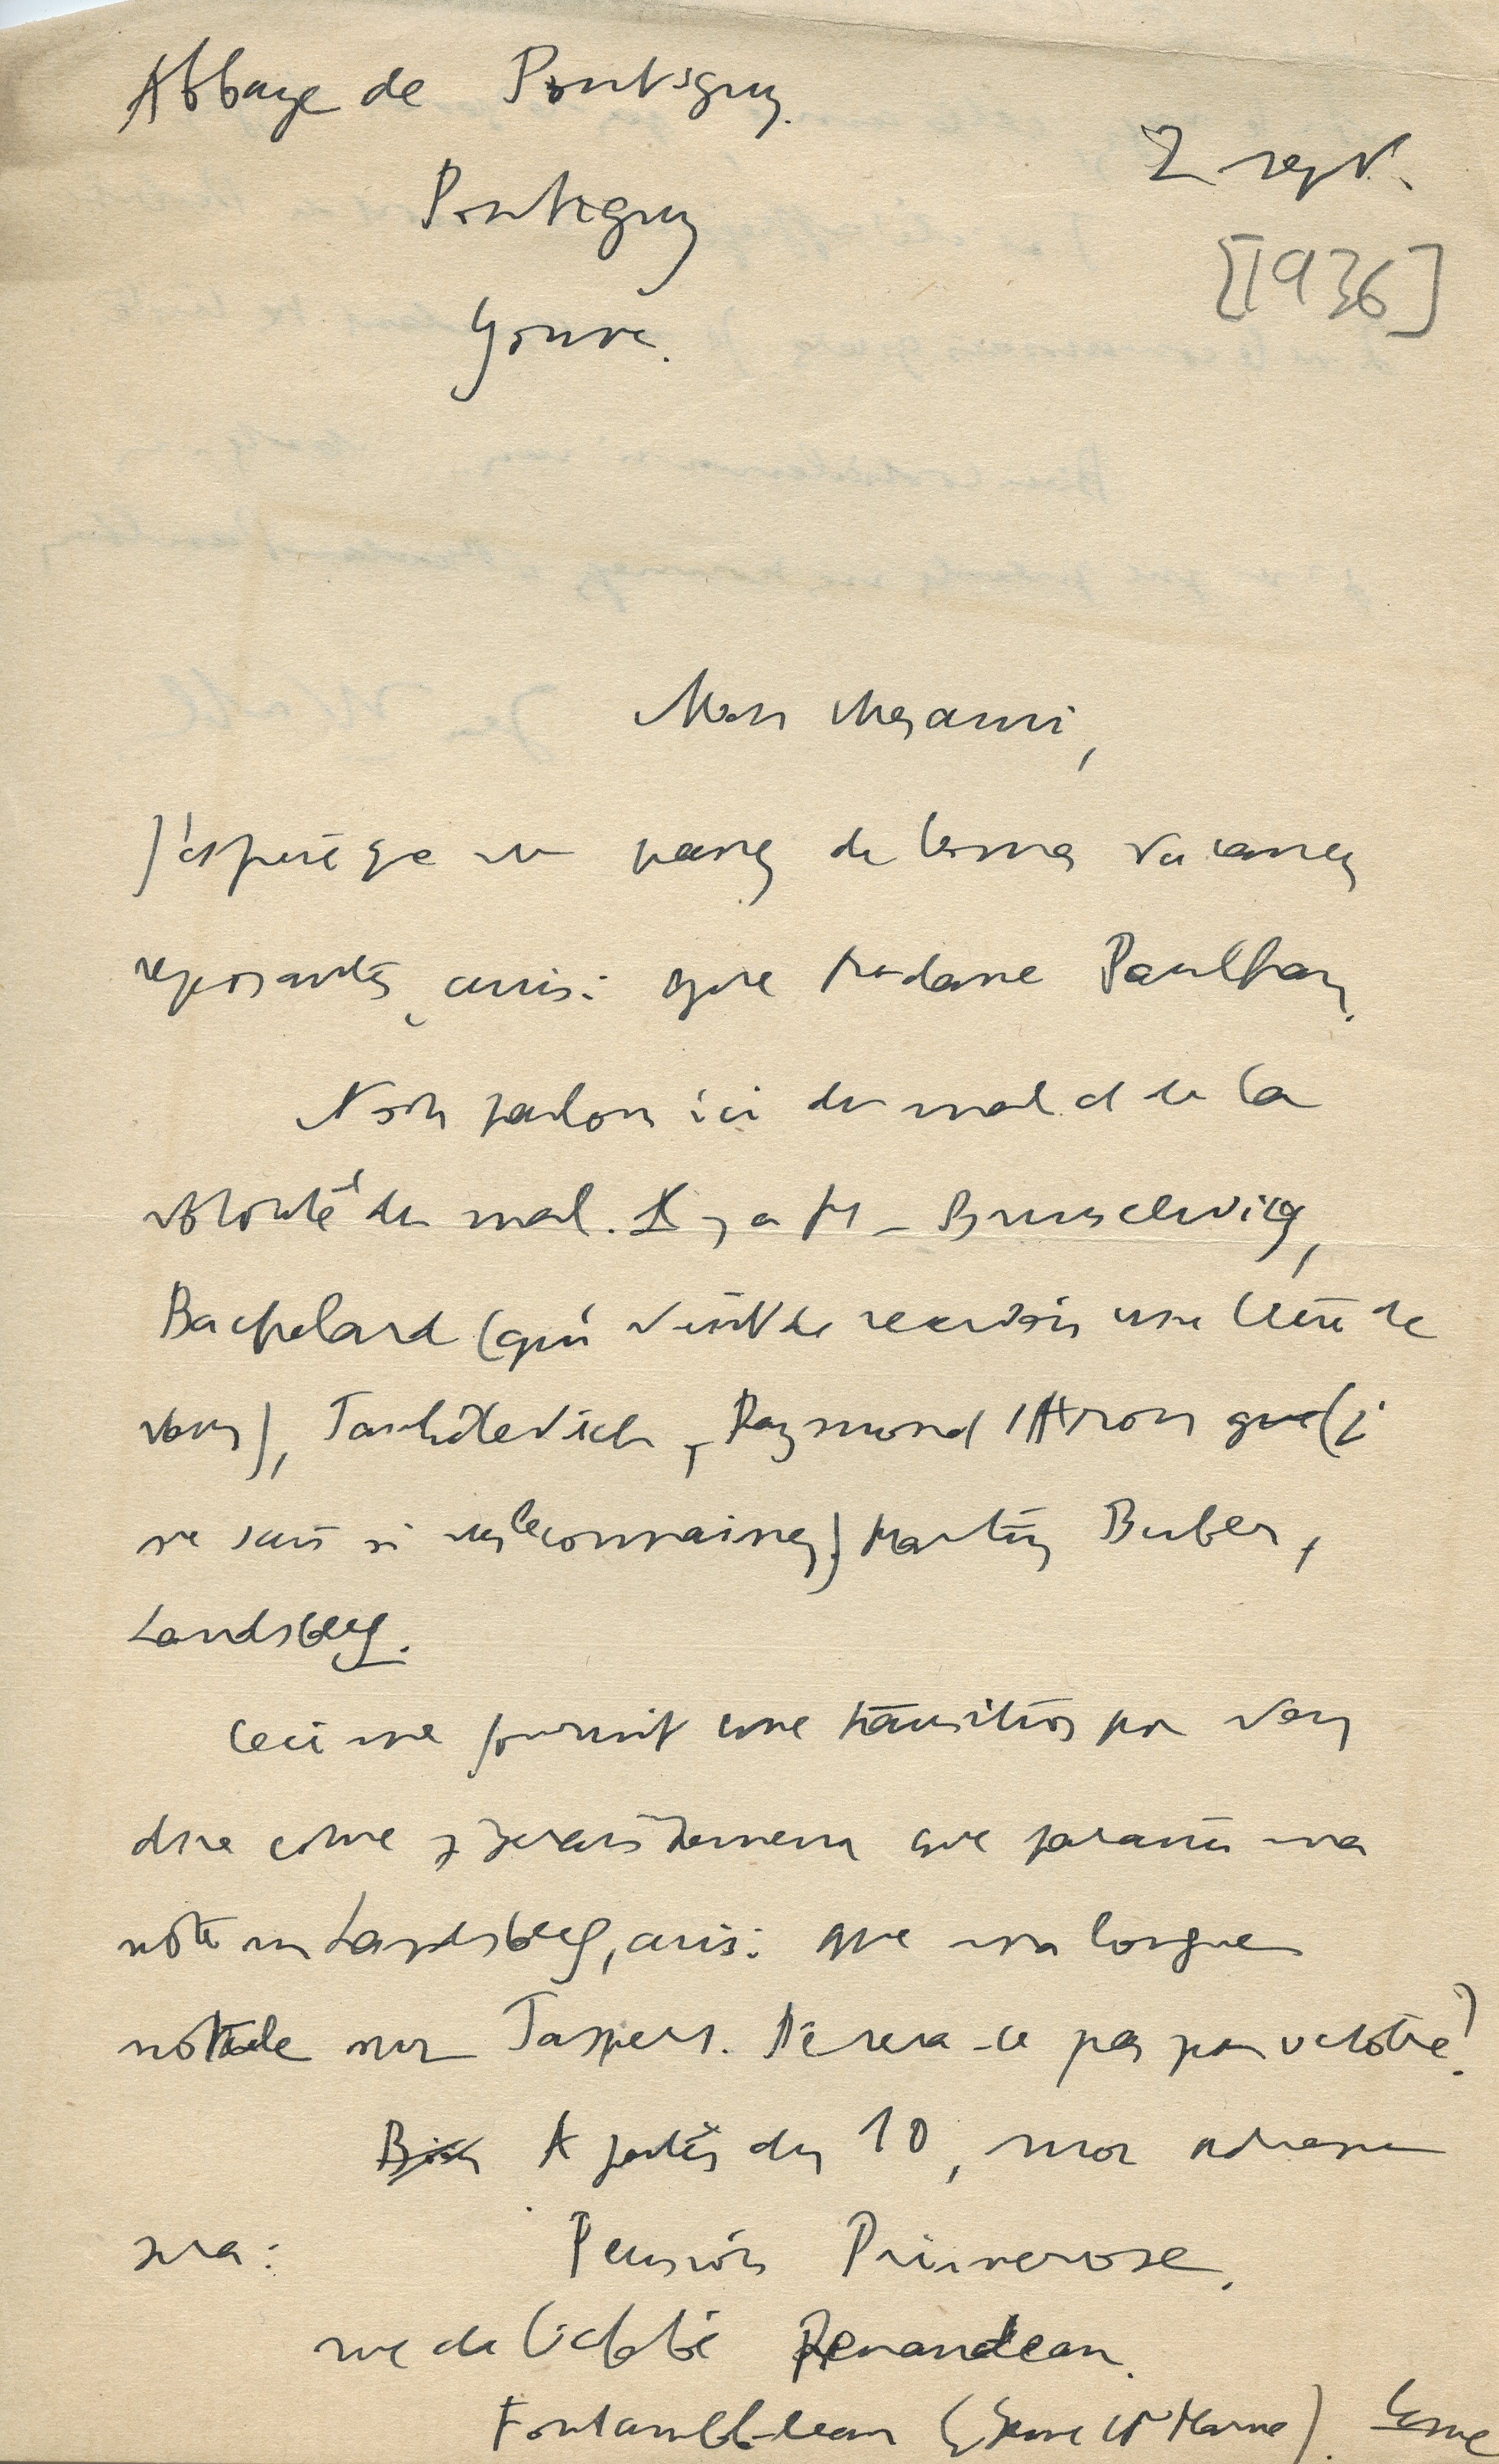 Abbaye de Pontigny.
2 sept.
Pontigny
[1936]
Yonne.
Mon cher ami,
J'espère que vous passez de bonnes vacances
reposantes, ainsi que Madame Paulhan.
Nous parlons ici du mal et de la
volonté du mal. Il y a M. Brunschvicg,
Bachelard (qui vient de recevoir une lettre de
vous), Jankélévitch, Raymond Aron que (je
ne sais si vous le connaissez) Martin Buber,
Landsberg.
Ceci me fournit une transition pour vous
dire comme je serais heureux que paraisse ma
note sur Landsberg, ainsi que ma longue
note sur Jaspers. Ne sera-ce pas pour octobre?
A partir du 10, mon adresse
sera : Pension Primerose.
rue de l'abbé
Fontainebleau (Seine et Marne).